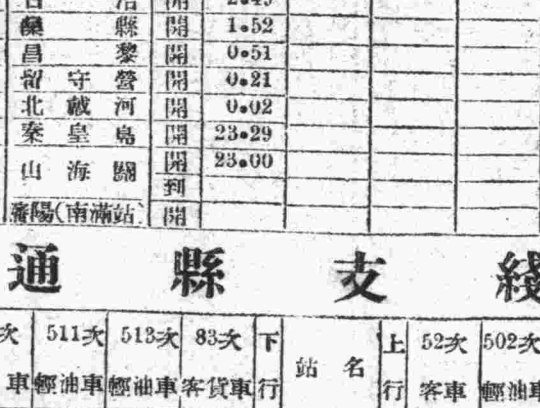 開 2.49
灤縣 開 1.52
昌黎 開 0.51
留守營 開 0.21
北戴河 開 0.02
秦皇島 開 23.29
山海關 開 23.00
到
瀋陽(南滿站) 開
通縣支綫
次 511次 513次 83次 下 站名 上 52次 502次
車 輕油車 輕油車 客貨車 行 行 客車 輕油車